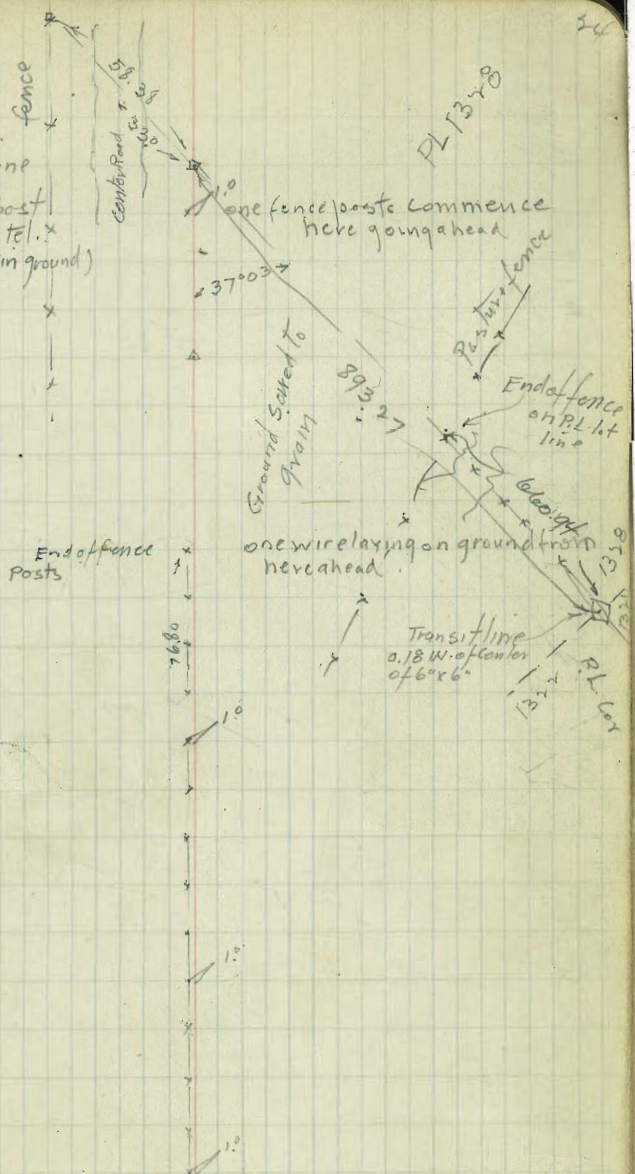 24
fence
ne
post
tel.
in ground)
Center Road
PL 1328
1.0
one fence posts commence
here going ahead
37°03'
Pasture fence
Ground Soted to
grain
893.27
End of fence
on P.L. lot
line
660.94
1328
End of fence
Posts
one wire laying on ground from
here ahead.
76.80
Transit line
0.18 W. of Center
of 6" x 6"
1322
P.L. Cor
1.0
1.0
1.0